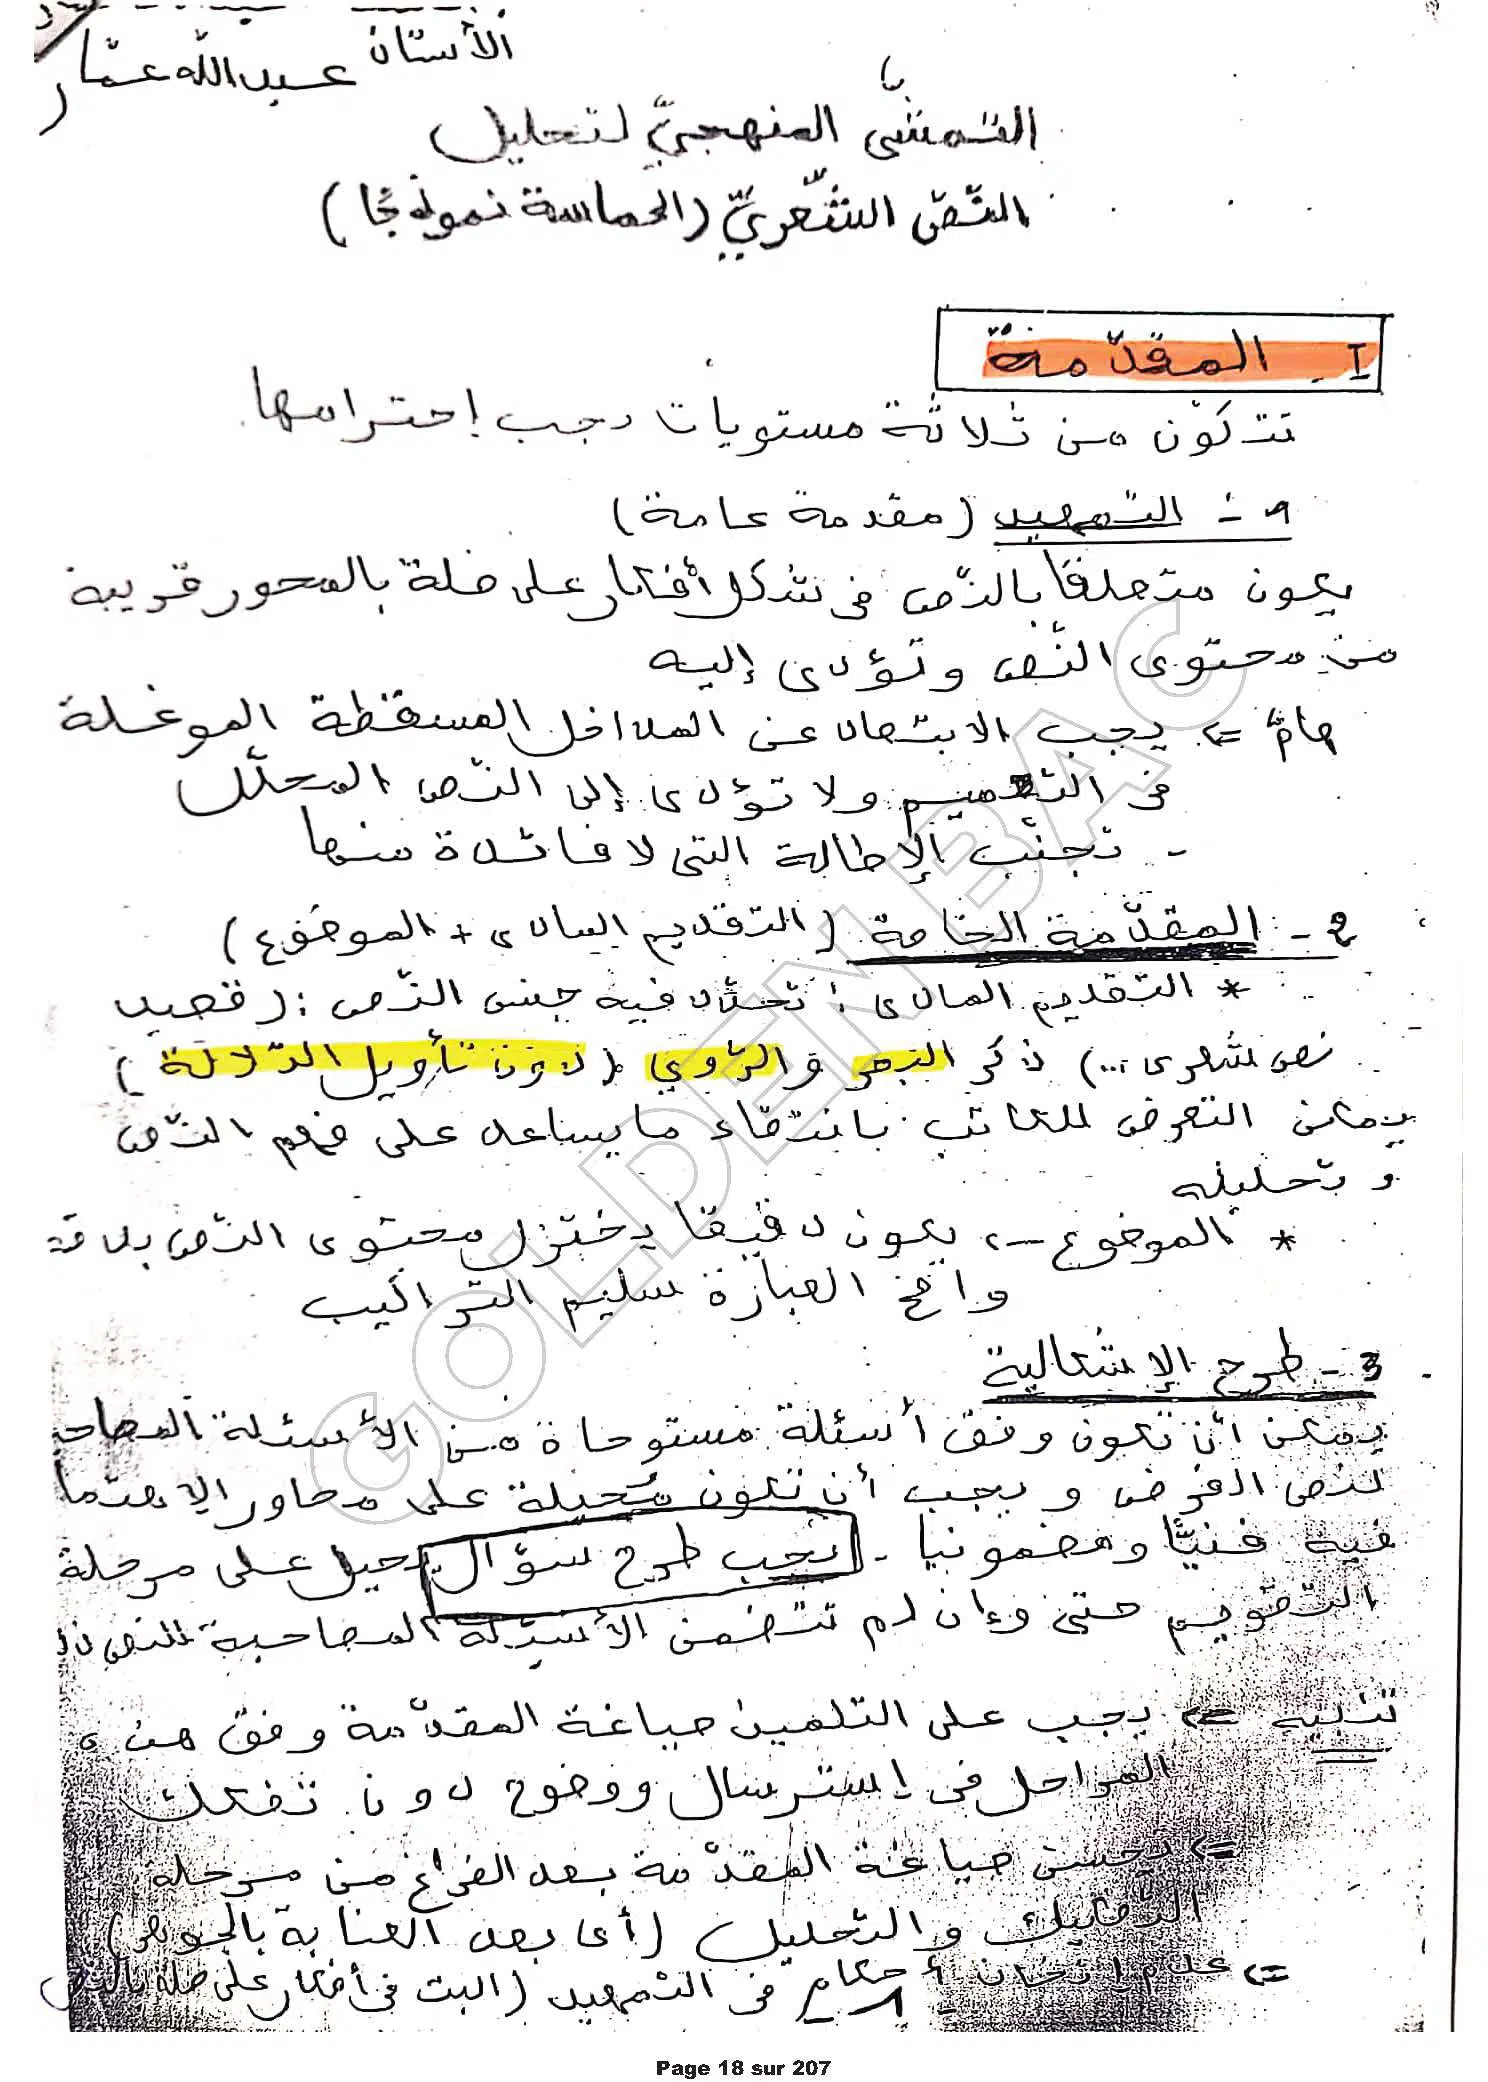 الأستاذ عبد الله عمّار
التمشّي المنهجيّ لتحليل
النّصّ الشّعريّ (الحماسة نموذجًا)
I - المقدّمة
تتكوّن من ثلاثة مستويات يجب إحترامها.
1 - التمهيد (مقدمة عامة)
يكون متعلقا بالنّص في شكل أفكار على صلة بالمحور قريبة
من محتوى النّص وتؤدي إليه
هامّ => يجب الابتعاد عن المداخل المسقطة الموغلة
في التعميم ولا تؤدي إلى النّص المحلّل
- تجنّب الإطالة التي لا فائدة منها
2 - المقدّمة الخاصة (التقديم المادي + الموضوع)
* التقديم المادي : تحدّد فيه جنس النّص : (قصيد
نص شعري ...) ذكر البحر والرّوي (دون تأويل الدّلالة)
يمكن التعرض للكاتب بانتقاء ما يساعد على فهم النّص
وتحليله
* الموضوع -> يكون دقيقا يختزل محتوى النّص بدقة
واضح العبارة سليم التراكيب
3 - طرح الإشكالية
يمكن أن تكون وفق أسئلة مستوحاة من الأسئلة المصاحبة
لنص الفرض ويجب أن تكون مُحيلة على محاور الاهتما
فيه فنيًّا ومضمونيا - يجب طرح سؤال يحيل على مرحلة
التّقويم حتى وإن لم تتضمن الأسئلة المصاحبة للنص
تنبيه => يجب على التلميذ صياغة المقدّمة وفق هذه
المراحل في إسترسال ووضوح دون تفكك
=> يحسن صياغة المقدّمة بعد الفراغ من مرحلة
التفكيك والتحليل (أي بعد العناية بالجوهر)
=> عدم إتخاذ أحكام في التمهيد (البت في أفكار على صلة بالنص
GOLDEN BAC
Page 18 sur 207